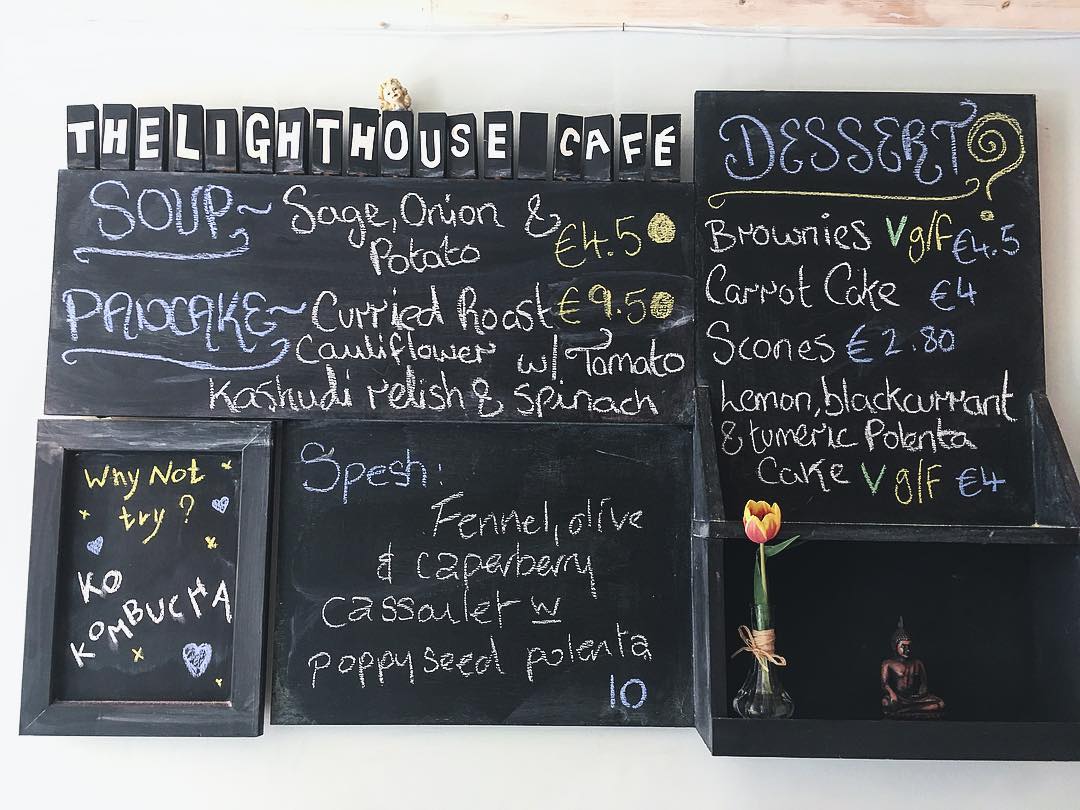 THE LIGHTHOUSE CAFÉ
SOUP~ Sage, Onion &
Potato €4.5
PANCAKE~ Curried Roast €9.50
Cauliflower w/ Tomato
Kashudi relish & spinach
Why Not
try?
KO
KOMBUCHA
Spesh:
Fennel, olive
& caperberry
cassoulet w
poppyseed polenta
10
DESSERT?
Brownies V g/f €4.5
Carrot Cake €4
Scones €2.80
Lemon, blackcurrant
& tumeric Polenta
Cake V g/f €4